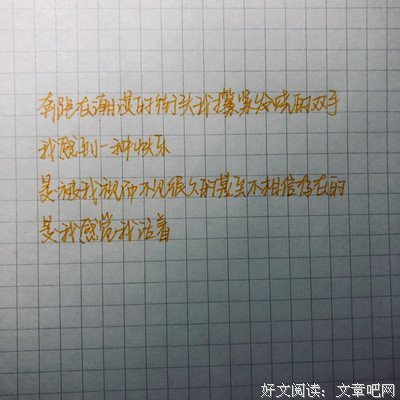 奔跑在潮湿的街头我攥紧冷晓的双手
我感到一种快乐
是被我视而不见很久的甚至不相信存在的
是我感觉我活着
好文阅读：文章吧网